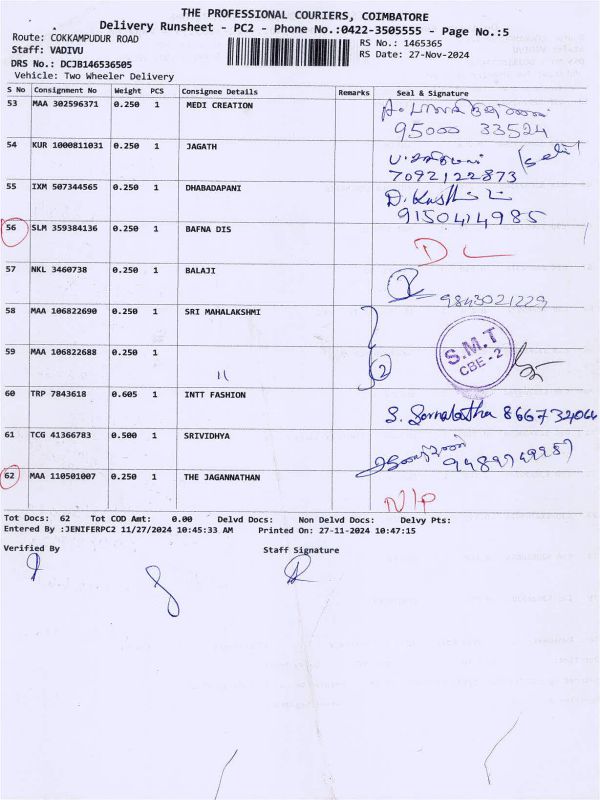 THE PROFESSIONAL COURIERS, COIMBATORE
Delivery Runsheet - PC2 - Phone No.:0422-3505555 - Page No.:5
Route: COKKAMPUDUR ROAD
RS No.: 1465365
Staff: VADIVU
RS Date: 27-Nov-2024
DRS No.: DCJB146536505
Vehicle: Two Wheeler Delivery
S No Consignment No Weight PCS Consignee Details Remarks Seal & Signature
53 MAA 302596371 0.250 1 MEDI CREATION
95000 33524
54 KUR 1000811031 0.250 1 JAGATH
7092122873
55 IXM 507344565 0.250 1 DHABADAPANI
9150414985
56 SLM 359384136 0.250 1 BAFNA DIS
D L
57 NKL 3460738 0.250 1 BALAJI
9843021229
58 MAA 106822690 0.250 1 SRI MAHALAKSHMI
S.M.T
CBE - 2
59 MAA 106822688 0.250 1 "
2
60 TRP 7843618 0.605 1 INTT FASHION
61 TCG 41366783 0.500 1 SRIVIDHYA
62 MAA 110501007 0.250 1 THE JAGANNATHAN
N/P
Tot Docs: 62 Tot COD Amt: 0.00 Delvd Docs: Non Delvd Docs: Delvy Pts:
Entered By :JENIFERPC2 11/27/2024 10:45:33 AM Printed On: 27-11-2024 10:47:15
Verified By Staff Signature